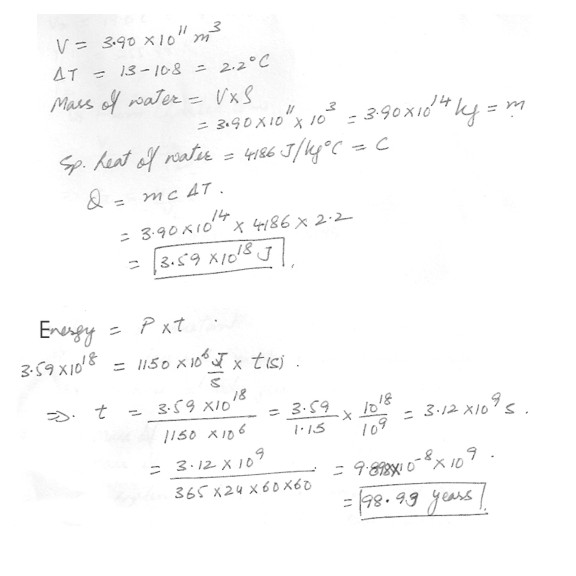 V = 3.90 x 10¹¹ m³
ΔT = 13 - 10.8 = 2.2°C
Mass of water = V x S
= 3.90 x 10¹¹ x 10³ = 3.90 x 10¹⁴ kg = m
Sp. heat of water = 4186 J/kg°C = C
Q = m c ΔT.
= 3.90 x 10¹⁴ x 4186 x 2.2
= 3.59 x 10¹⁸ J.
Energy = P x t.
3.59 x 10¹⁸ = 1150 x 10⁶ J/s x t(s).
⇒. t = 3.59 x 10¹⁸ / 1150 x 10⁶ = 3.59/1.15 x 10¹⁸/10⁹ = 3.12 x 10⁹ s.
= 3.12 x 10⁹ / 365 x 24 x 60 x 60 = 10⁻⁸ x 10⁹.
= 98.99 years.